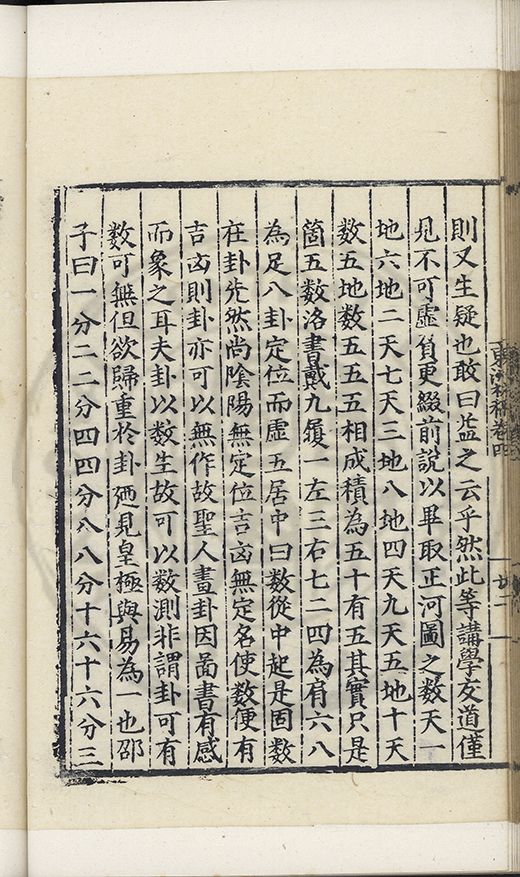 則又生疑也敢曰益之云乎然此等講學友道僅
見不可虛負更綴前說以畢取正河圖之數天一
地六地二天七天三地八地四天九天五地十天
数五地数五五五相成積為五十有五其實只是
箇五数洛書戴九履一左三右七二四為肩六八
為足八卦定位而虛五居中曰数從中起是固数
在卦先然尚陰陽無定位吉凶無定名使数便有
吉凶則卦亦可以無作故聖人畫卦因啚書有感
而象之耳夫卦以数生故可以数測非謂卦可有
数可無但欲歸重於卦廼見皇極與易為一也邵
子曰一分二二分四四分八八分十六十六分三